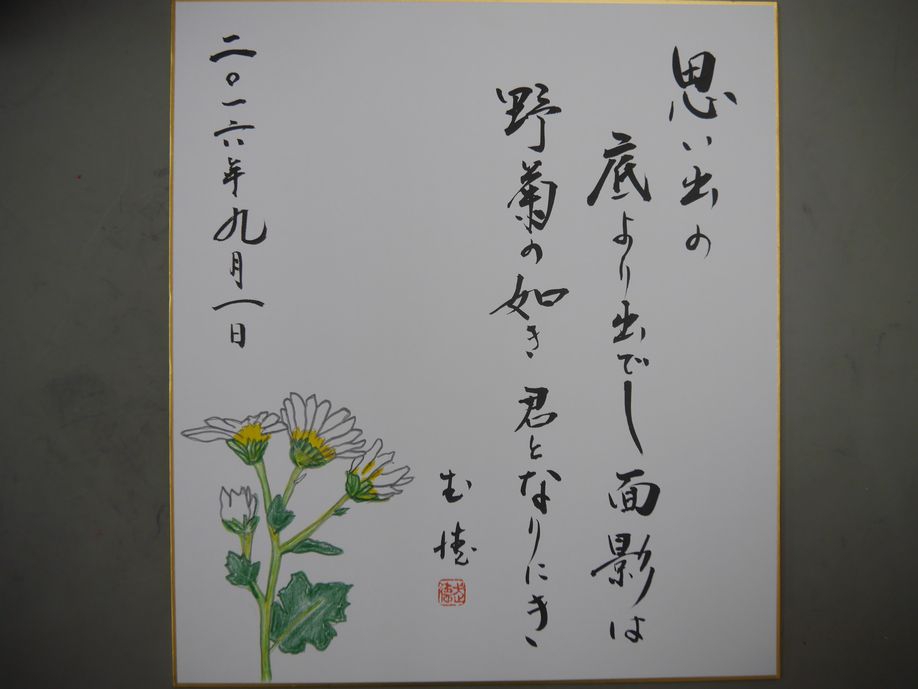 思い出の
底より出でし面影は
野菊の如き君となりにき
武徳
二〇一六年九月一日
武徳